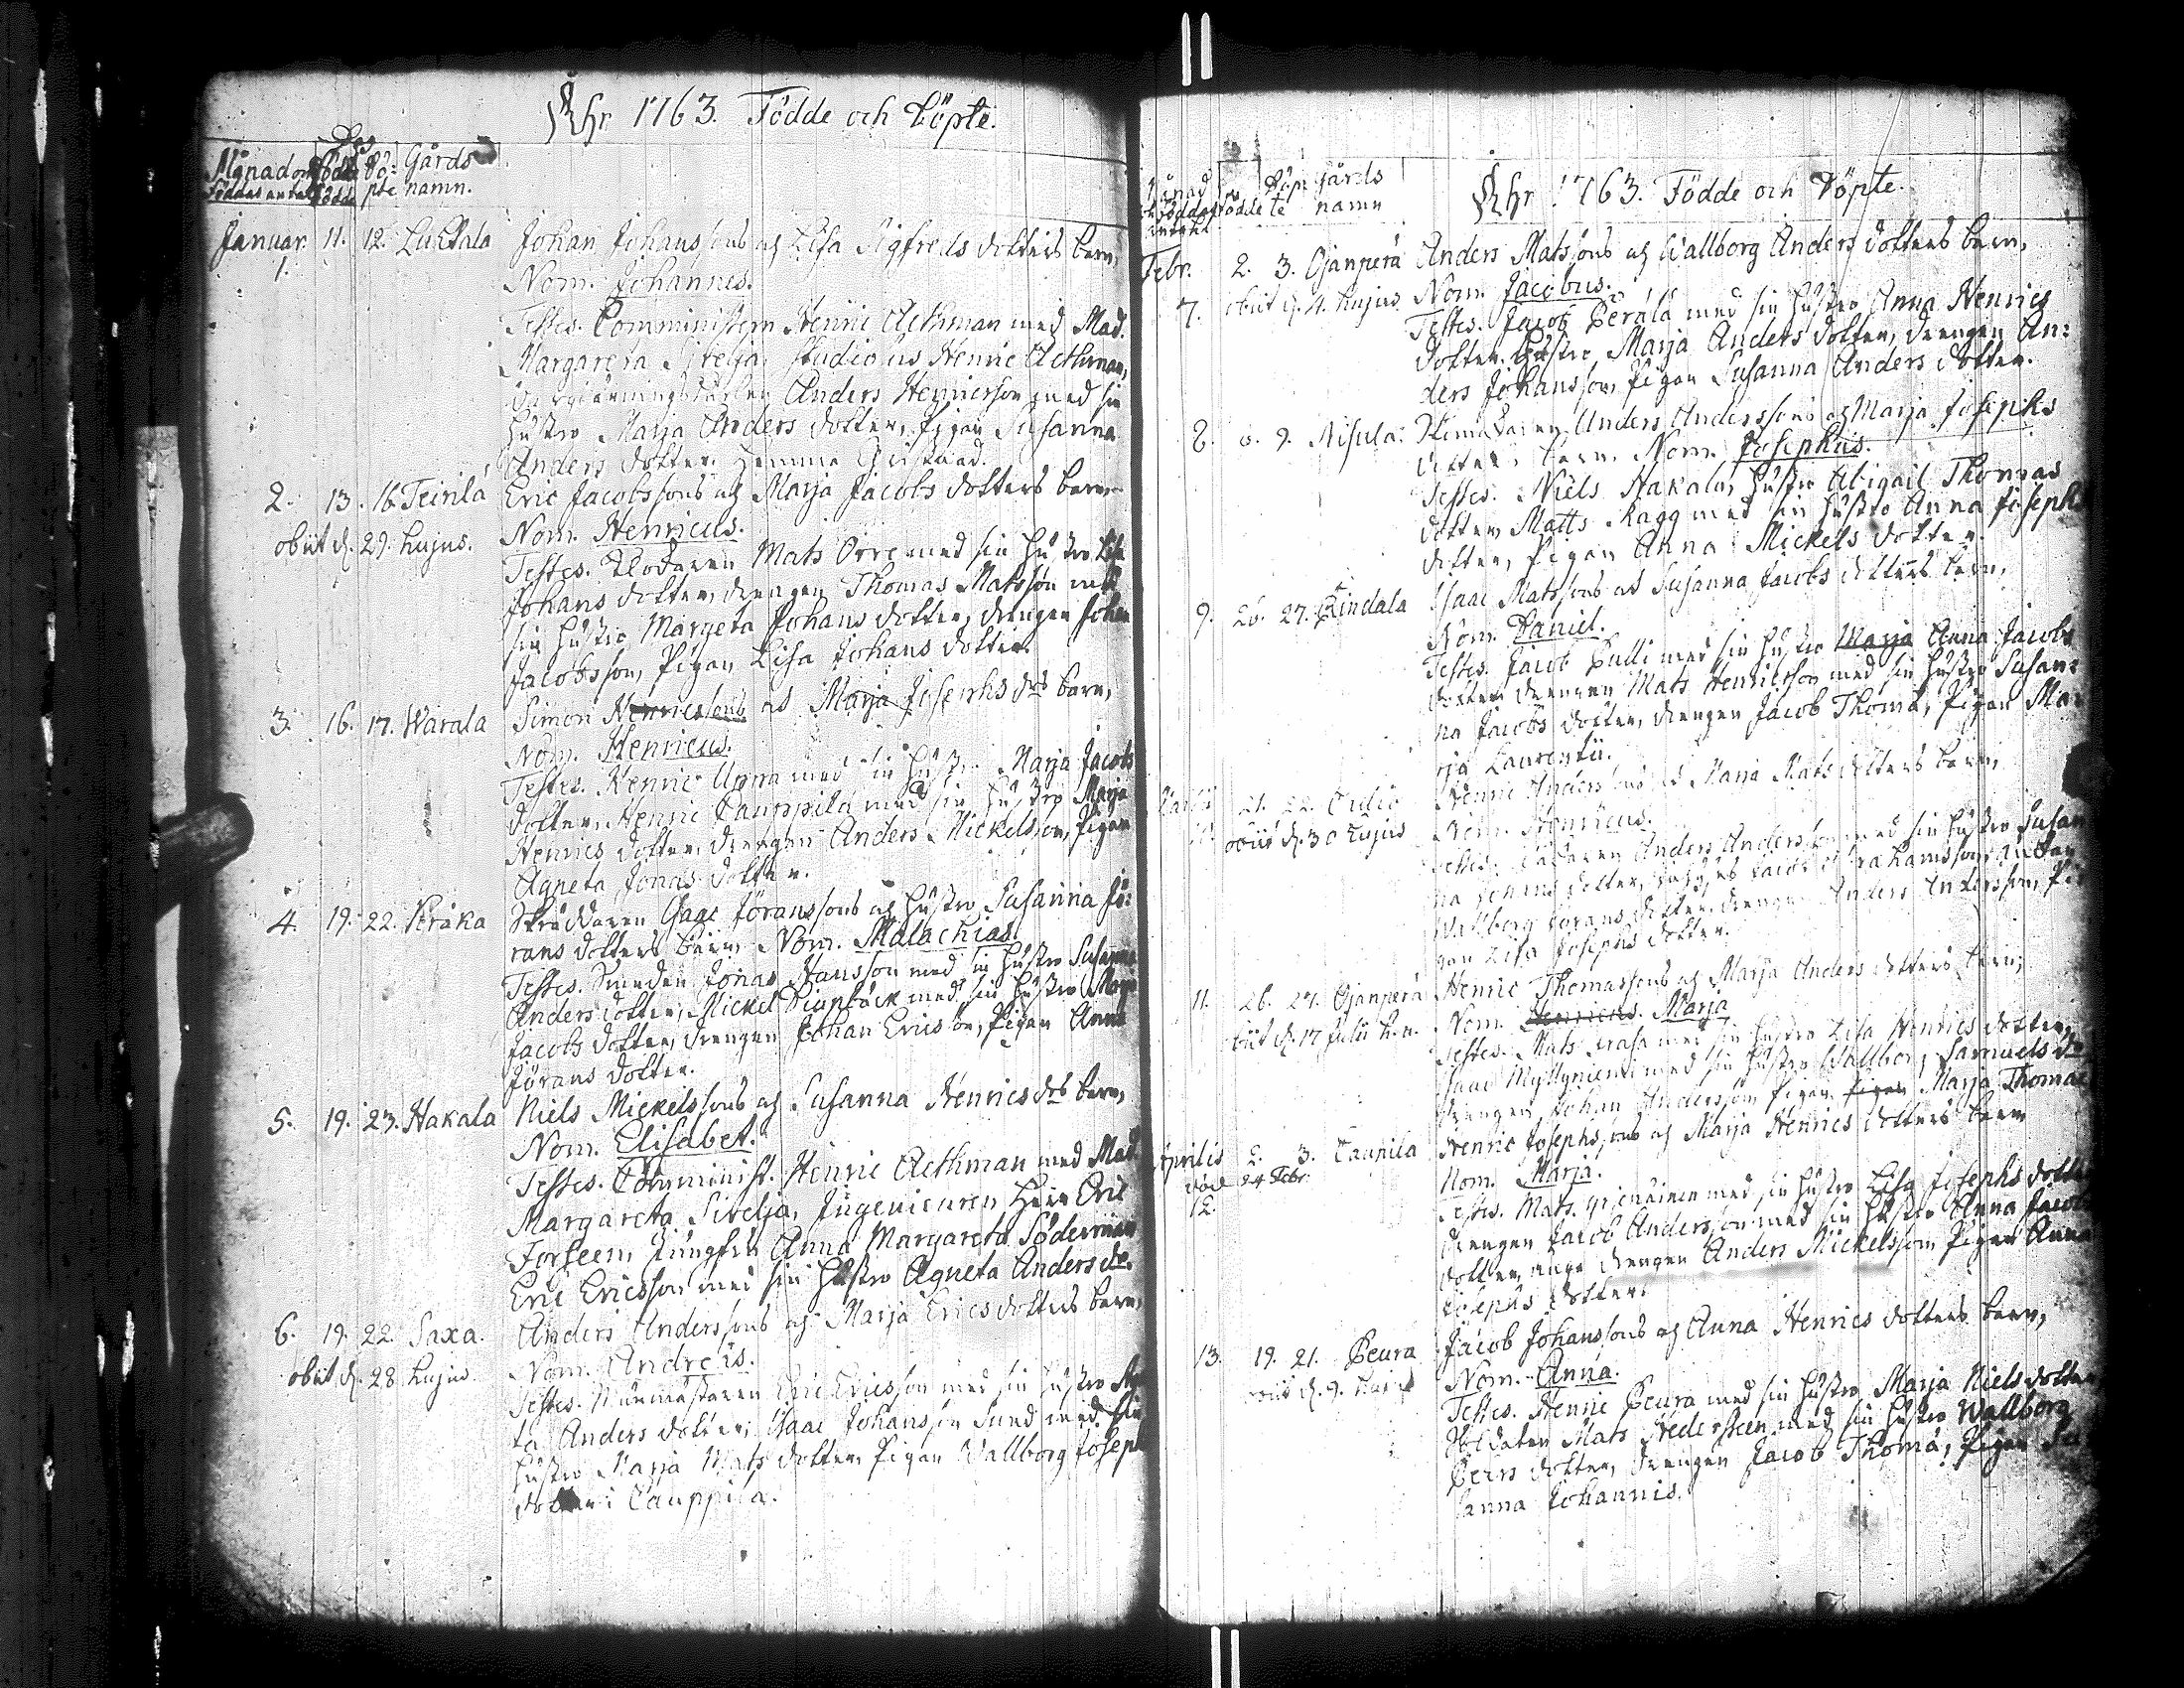 Åhr 1763. Födde och Döpte.
Månad och Föddas antal Dag Födde Dö: pte Gårds namn.
Januar. 11. 12. Luckala Johan Johanssons och Lisa Sigfreds dotters barn,
1. Nom. Johannes.
Testes. Comministern Henric Aethman med Mad.
Margareta Sirelja, Studiosus Henric Aethman,
Anders Henricsson med sin
hustro Marja Anders dotter, Pigan Susanna
Anders dotter hemma
2. 13. 16. Teirilä Eric Jacobssons och Marja Jacobs dotters barn,
obiit d. 29. hujus. Nom. Henricus.
Testes. Mats Orre med sin hustro Lisa
Johans dotter, drengen Thomas Matsson med
sin hustro Margeta Johans dotter, drengen Johan
Jacobsson, Pigan Lisa Johans dotter.
3. 16. 17. Warala Simon Henricssons och Marja Josephs drs barn,
Nom. Henricus.
Testes. Henric med sin hustro Marja Jacobs
dotter, Henric Cauppila med sin hustro Marja
Henrics dotter, drengen Anders Mickelsson, Pigan
Agneta Jonas dotter.
4. 19. 22. Peräkä Skräddaren Isaac Jöranssons och hustro Susanna Jö:
rans dotters barn Nom. Malachias.
Testes. Smeden Jonas Hansson med sin hustro Susanna
Anders dotter, Mickel med sin hustro Marja
Jacobs dotter, drengen Johan Ericsson, Pigan Anna
Jörans dotter.
5. 19. 23. Hakala Niels Mickelssons och Susanna Henrics drs barn,
Nom. Elisabet.
Testes. Comminist. Henric Aethman med Mad.
Margareta Sirelja, Ingenieuren Herr Eric
Forseen, Jungfru Anna Margareta Söderman
Eric Ericsson med sin hustro Agneta Anders dr.
6. 19. 22. Saxa. Anders Anderssons och Marja Erics dotters barn,
obiit d. 28 hujus. Nom. Andreas.
Testes. Eric Ericsson med sin hustro Agne
ta Anders dotter, Isaac Johansson Sund med sin
hustro Marja Mats dotter, Pigan Wallborg Joseph
dotter i Cauppila.
Åhr 1763. Födde och Döpte.
Månad och Föddas antahl Födde Döp te gårds namn
Febr. 2. 3. Ojanperä Anders Matssons och Wallborg Anders dotters barn,
7. obiit d. 4. hujus. Nom. Jacobus.
Testes. Jacob Perälä med sin hustro Anna Henrics
dotter. hustro Marja Anders dotter, drengen An:
ders Johansson, Pigan Susanna Anders dotter.
8. 9. Nisula. Anders Anderssons och Marja Josephs
dotters barn. Nom. Josephus.
Testes. Niels Hakala, hustro Abigail Thomas
dotter, Matts Ragg med sin hustro Anna Josephs
dotter, Pigan Anna Mickels dotter.
9. 26. 27. Rindala Isaac Matssons och Susanna Jacobs dotters barn,
Nom. Daniel.
Testes. Jacob Pulli med sin hustro Marja Anna Jacobs
dotter, drengen Mats Henricsson med sin hustro Susan:
na Jacobs dotter, drengen Jacob Thomæ, Pigan Mar
rja Laurentii.
21. 22. Henric Anderssons och Marja Mats dotters barn,
obiit d. 30 hujus Nom. Henricus.
Testes. Anders Andersson med sin hustro Susan
na Johans dotter, Jacob Abrahamsson
Wallborg Jörans dotter, drengen Anders Andersson, Pi
gan Lisa Josephs dotter.
11. 26. 27. Ojanperä Henric Thomassons och Marja Anders dotters barn,
obiit d. 17 Julii h. a. Nom. Henricus. Marja
Testes. Mats med sin hustro Lisa Henrics dotter,
Isaac Myllyniemi med sin hustro Wallborg Samuels dr
drengen Johan Andersson Pigan Pigan Marja Thomæ
Aprilis 2. 3. Caupila Henric Josephssons och Marja Henrics dotters barn
24 Febr. Nom. Marja.
12. Testes. Mats med sin hustro Lisa Josephs dotter
drengen Jacob Andersson med sin hustro Anna Jacobs
dotter, unga drengen Anders Mickelsson, Pigan Anna
Josephs dotter.
13. 19. 21. Peura Jacob Johanssons och Anna Henrics dotters barn,
obiit d. 9. Nom. Anna.
Testes. Henric Peura med sin hustro Marja Niels dotter
Soldaten Mats Hedersteen med sin hustro Wallborg
Pers dotter, drengen Jacob Thomæ, Pigan Su
sanna Johannis.